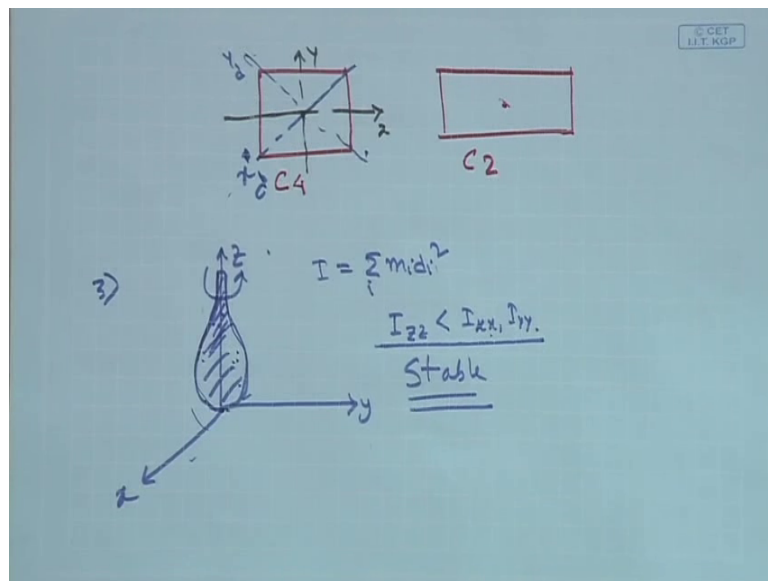 © CET
I.I.T. KGP
Yd
Y
x
xd
C4
C2
3)
Z
I = Σ midi²
i
Izz < Ixx, Iyy.
Stable
y
x